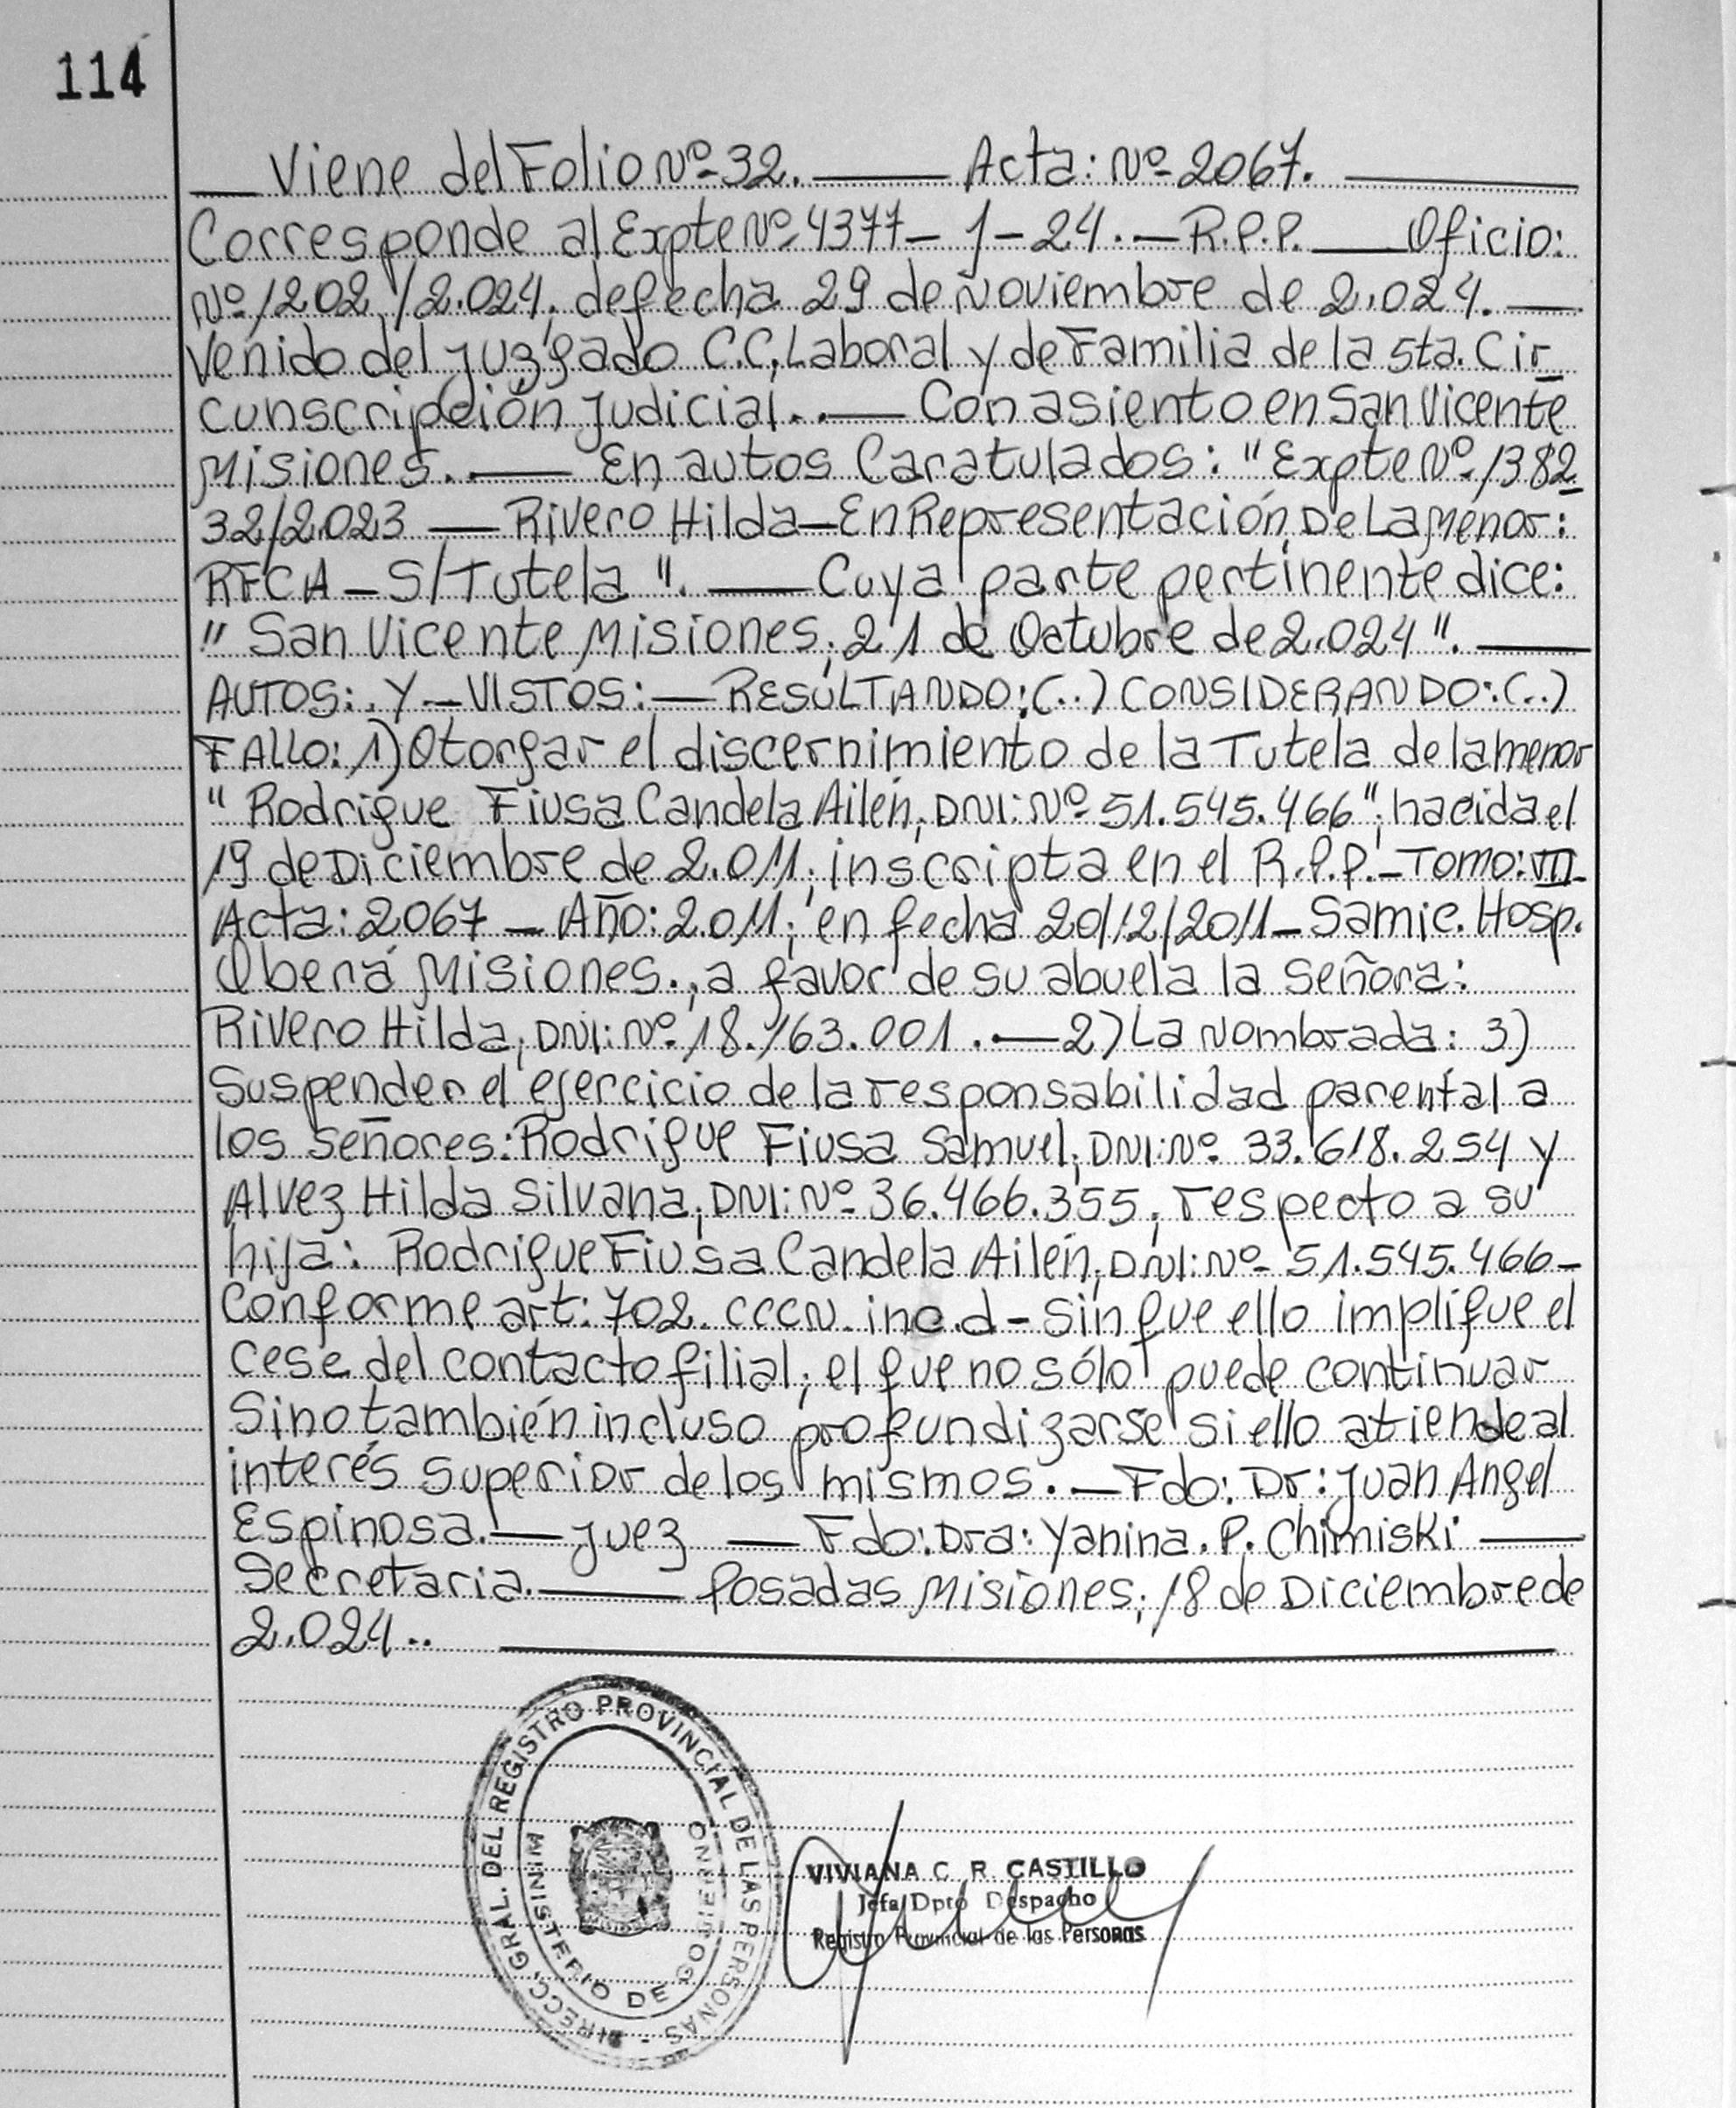 114
— Viene del Folio Nº 32. — Acta: Nº 2067. —
Corresponde al Expte Nº 4377 – 1 – 24. — R.P.P. — Oficio:
Nº 1202 / 2.024. de fecha 29 de Noviembre de 2.024. —
Venido del Juzgado C.C, Laboral y de Familia de la 5ta. Cir
cunscripción Judicial. . — Con asiento en San Vicente
Misiones. — En autos Caratulados: "Expte Nº 1382
32/2023 — Rivero Hilda – En Representación De La Menor:
RFCA – S/ Tutela ". — Cuya parte pertinente dice:
" San Vicente Misiones; 21 de Octubre de 2.024 ". —
AUTOS: Y – VISTOS: — RESULTANDO: (..) CONSIDERANDO: (..)
FALLO: 1) Otorgar el discernimiento de la Tutela de la menor
" Rodrigue Fiusa Candela Ailén, DNI: Nº 51.545.466", nacida el
19 de Diciembre de 2.011; inscripta en el R.P.P. – Tomo: VII –
Acta: 2067 – Año: 2.011; en fecha 20/12/2011 – Samic. Hosp.
Oberá Misiones., a favor de su abuela la Señora:
Rivero Hilda, DNI: Nº 18.163.001. — 2) La Nombrada: 3)
Suspender el ejercicio de la responsabilidad parental a
los Señores: Rodrigue Fiusa Samuel, DNI: Nº 33.618.254 y
Alvez Hilda Silvana, DNI: Nº 36.466.355, respecto a su
hija: Rodrigue Fiusa Candela Ailén, DNI: Nº 51.545.466 –
Conforme art: 702. CCCN. inc. d – Sin que ello implique el
Cese del contacto filial; el que no sólo puede continuar
Sino también incluso profundizarse si ello atiende al
interés Superior de los mismos. — Fdo: Dr: Juan Angel
Espinosa. — Juez — Fdo: Dra: Yanina. P. Chimiski —
Secretaria. — Posadas Misiones; 18 de Diciembre de
2.024 .. —
DIRECC. GRAL. DEL REGISTRO PROVINCIAL DE LAS PERSONAS -
MINISTERIO DE GOBIERNO
VIVIANA C. R. CASTILLO
Jefa Dpto Despacho
Registro Provincial de las Personas